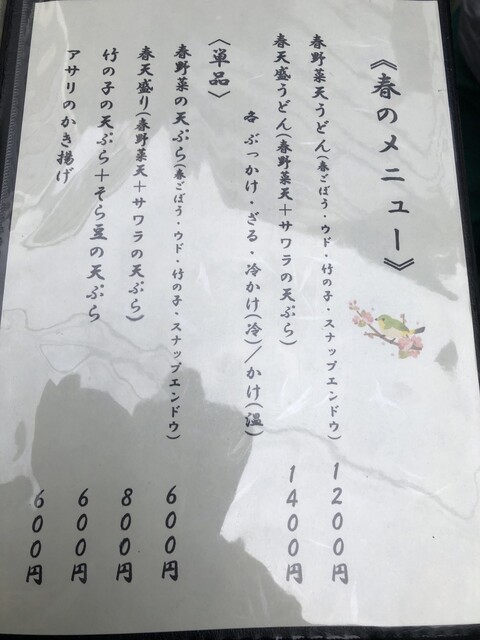 《春のメニュー》
春野菜天うどん(春ごぼう・ウド・竹の子・スナップエンドウ) 1200円
春天盛うどん(春野菜天＋サワラの天ぷら) 1400円
各 ぶっかけ・ざる・冷かけ(冷)／かけ(温)
〈単品〉
春野菜の天ぷら(春ごぼう・ウド・竹の子・スナップエンドウ) 600円
春天盛り(春野菜天＋サワラの天ぷら) 800円
竹の子の天ぷら＋そら豆の天ぷら 600円
アサリのかき揚げ 600円